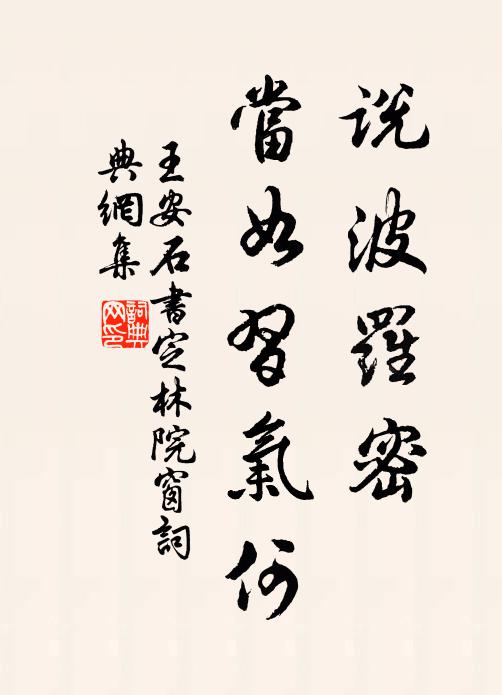 說波羅密
當如習氣何
王安石書定林院窗詞
典網集
詞典網印